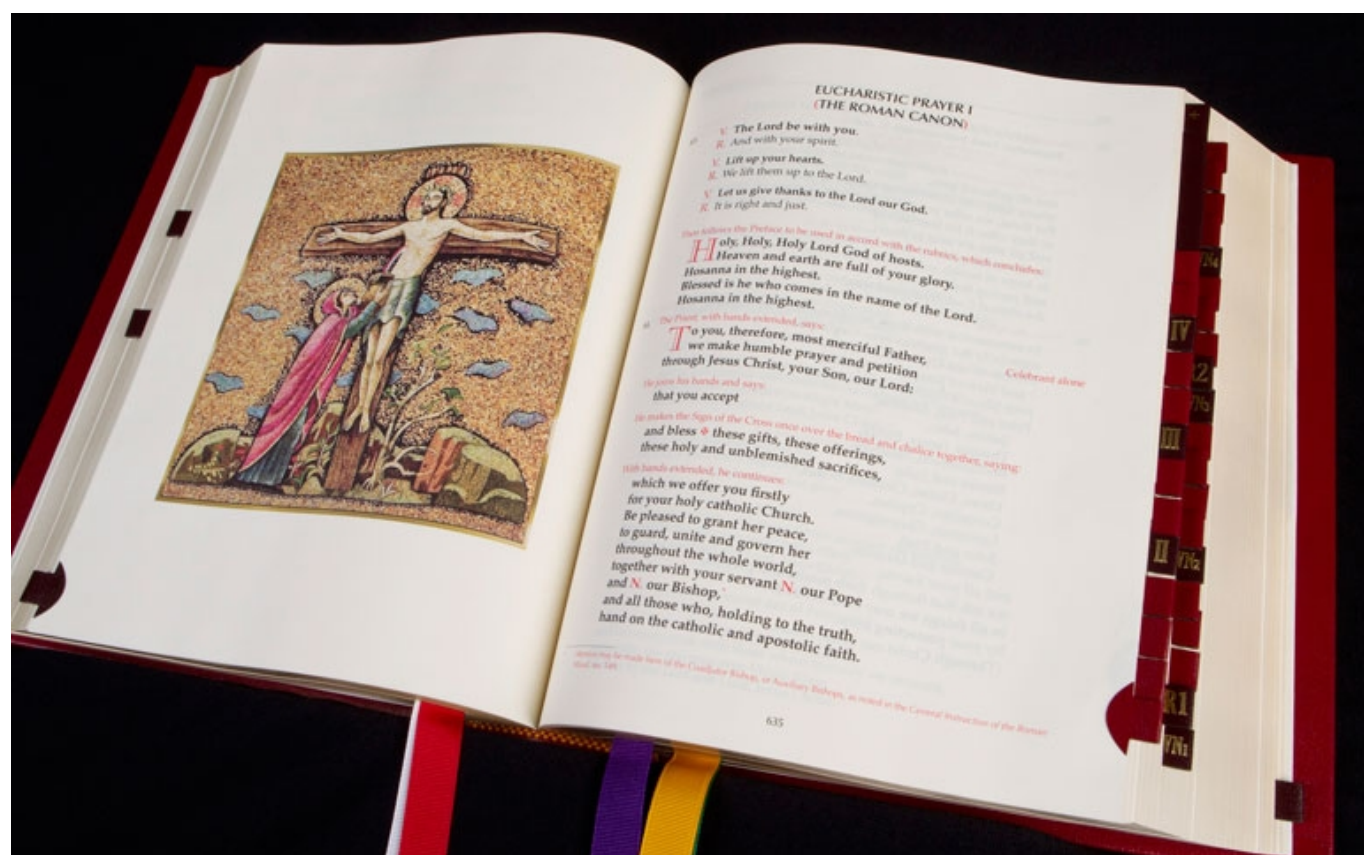 EUCHARISTIC PRAYER I
(THE ROMAN CANON)
V. The Lord be with you.
R. And with your spirit.
V. Lift up your hearts.
R. We lift them up to the Lord.
V. Let us give thanks to the Lord our God.
R. It is right and just.
Then follows the Preface to be used in accord with the rubrics, which concludes:
Holy, Holy, Holy Lord God of hosts.
Heaven and earth are full of your glory.
Hosanna in the highest.
Blessed is he who comes in the name of the Lord.
Hosanna in the highest.
The Priest, with hands extended, says:
To you, therefore, most merciful Father,
we make humble prayer and petition
through Jesus Christ, your Son, our Lord:
Celebrant alone
He joins his hands and says:
that you accept
He makes the Sign of the Cross once over the bread and chalice together, saying:
and bless ✠ these gifts, these offerings,
these holy and unblemished sacrifices,
With hands extended, he continues:
which we offer you firstly
for your holy catholic Church.
Be pleased to grant her peace,
to guard, unite and govern her
throughout the whole world,
together with your servant N. our Pope
and N. our Bishop,
and all those who, holding to the truth,
hand on the catholic and apostolic faith.
may be made here of the Coadjutor Bishop, or Auxiliary Bishops, as noted in the General Instruction of the Roman
635
IV
III
II
VN2
R1
VN1